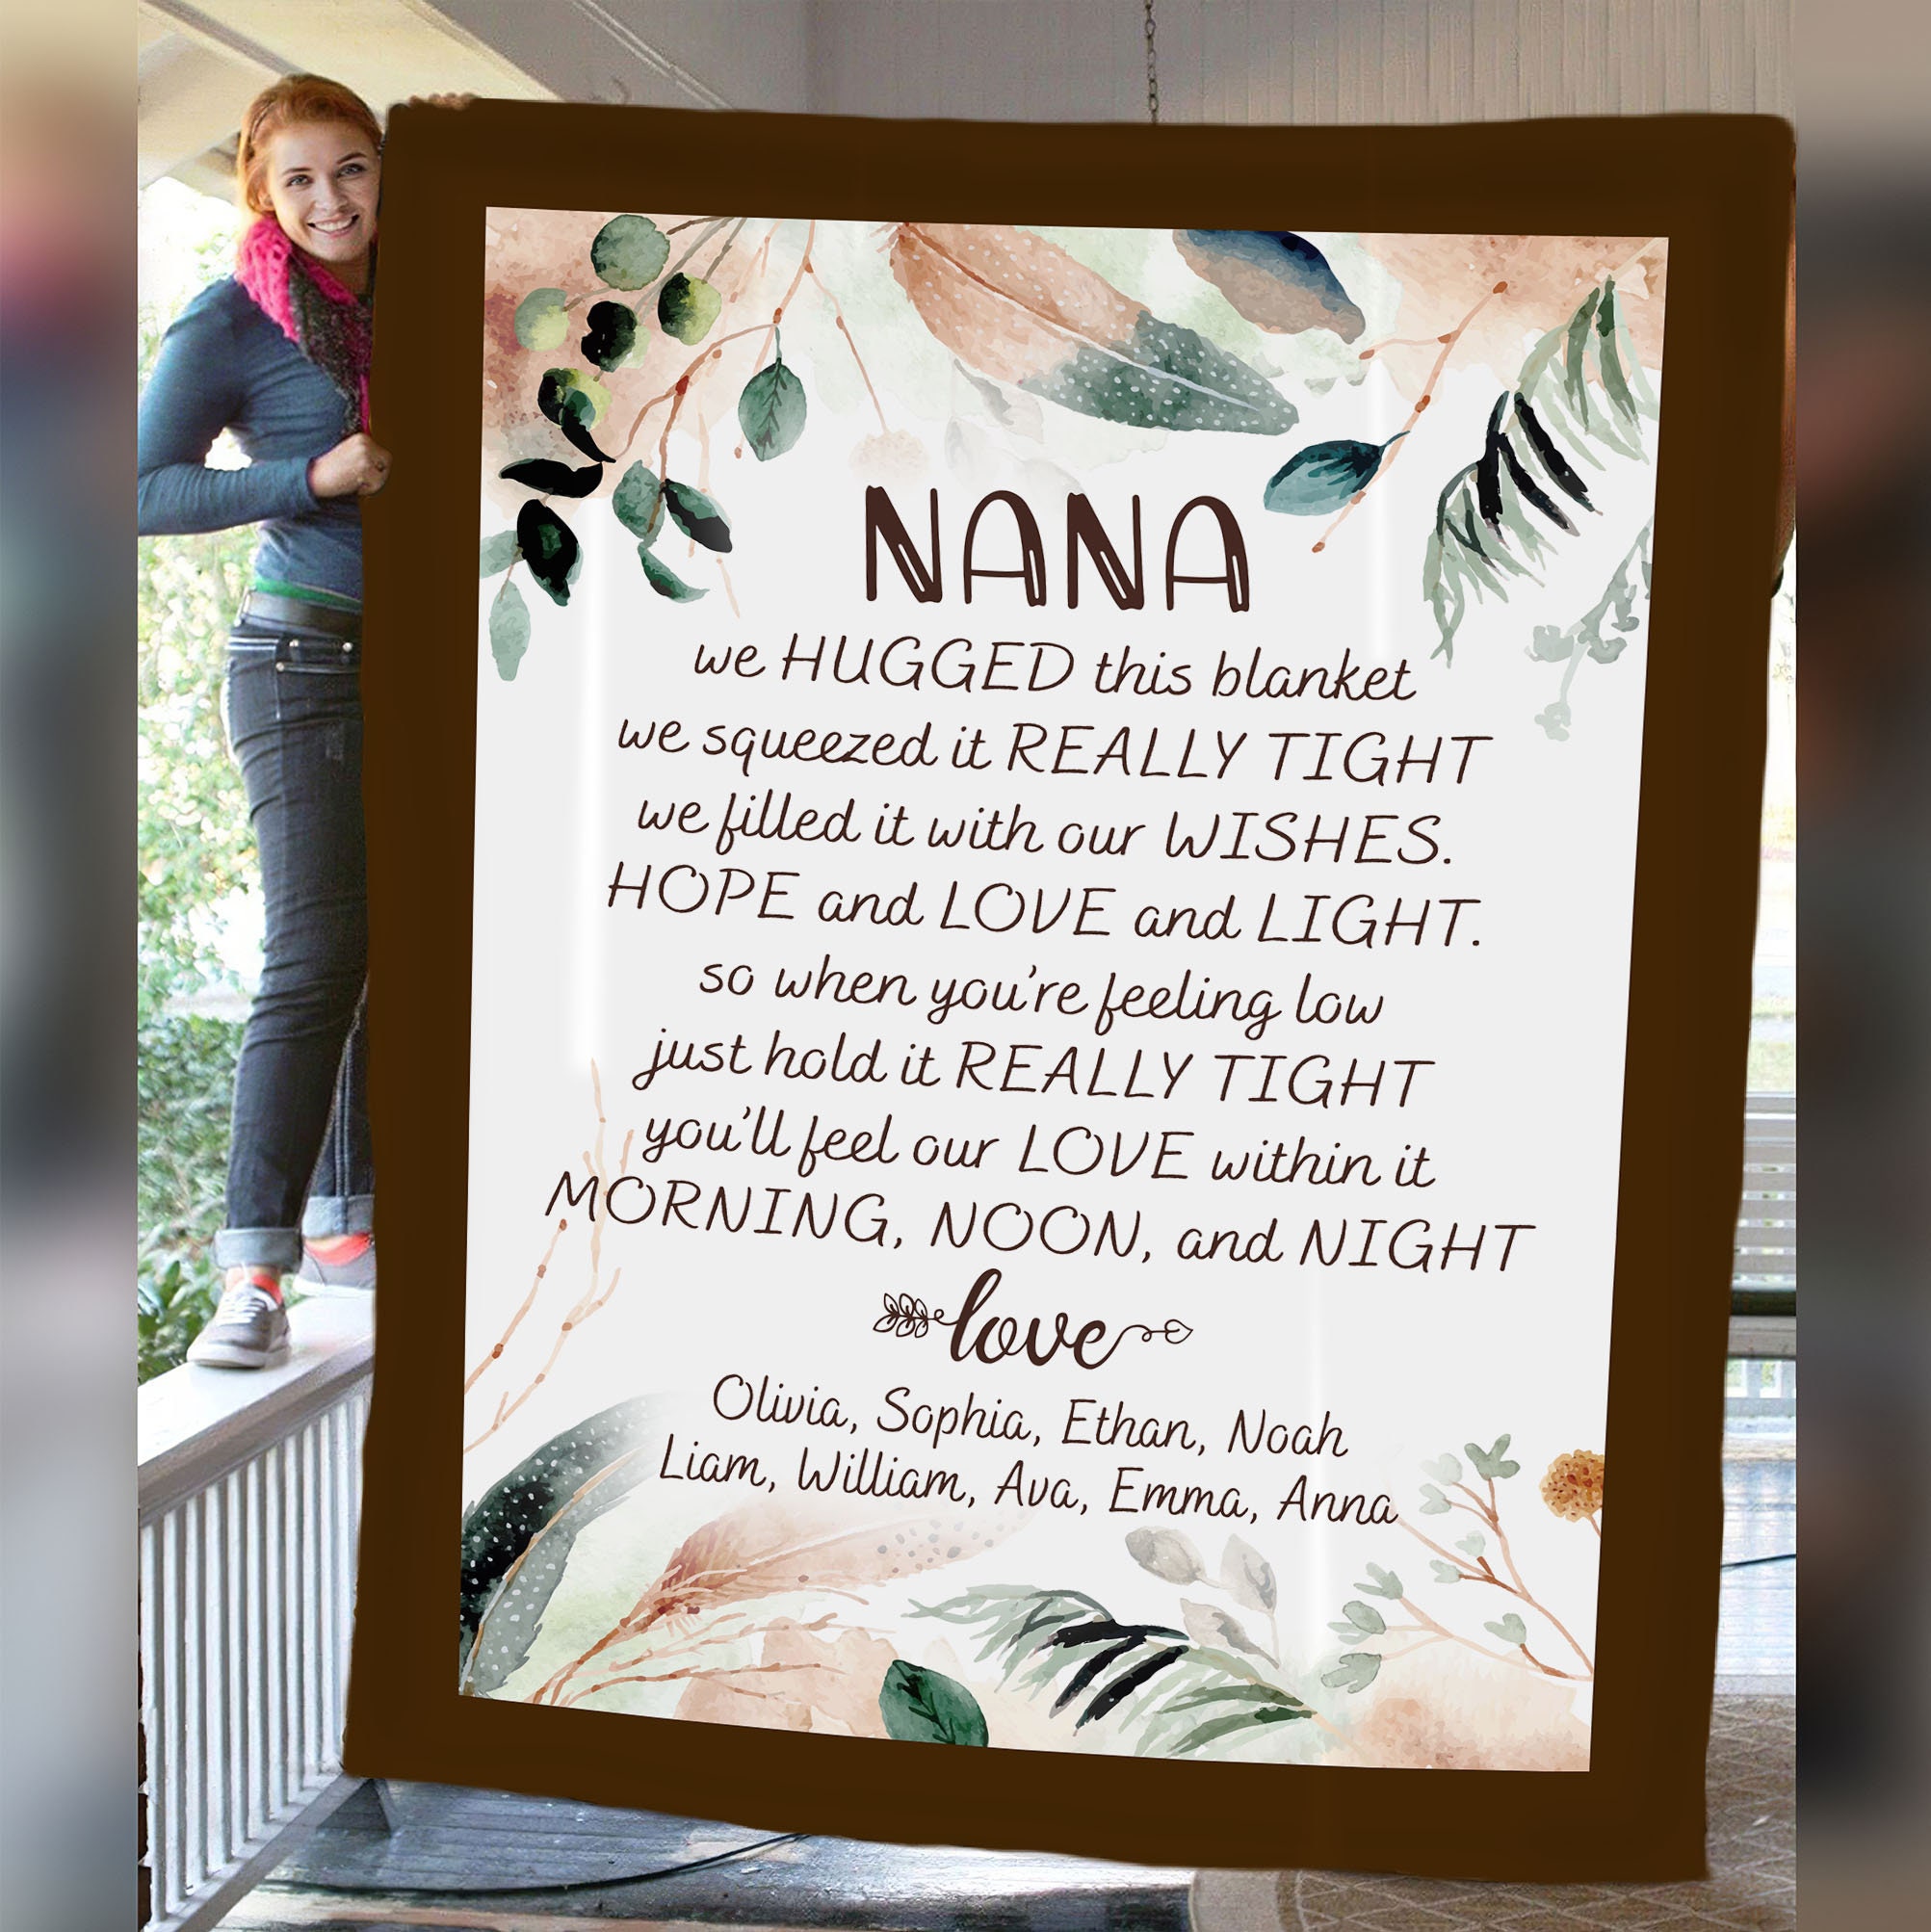 NANA
we HUGGED this blanket
we squeezed it REALLY TIGHT
we filled it with our WISHES.
HOPE and LOVE and LIGHT.
so when you're feeling low
just hold it REALLY TIGHT
you'll feel our LOVE within it
MORNING, NOON, and NIGHT
love
Olivia, Sophia, Ethan, Noah
Liam, William, Ava, Emma, Anna